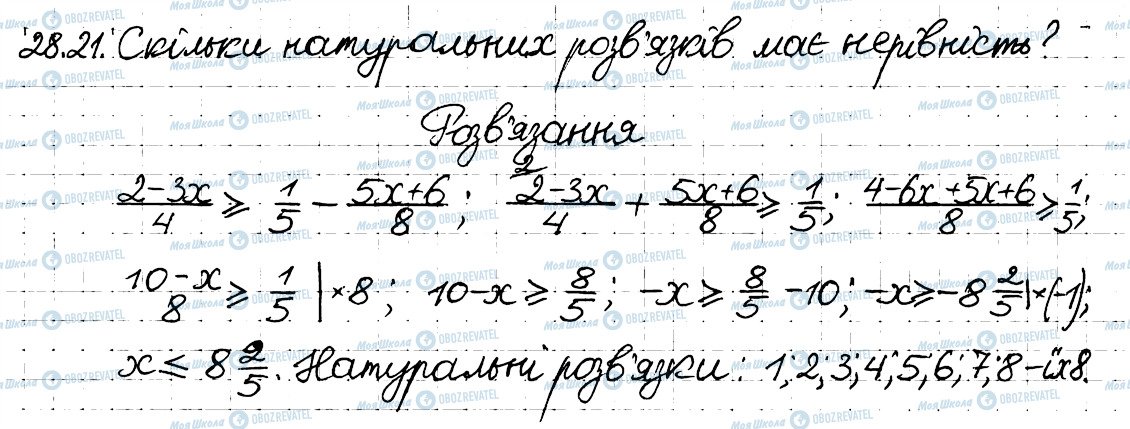 28.21. Скільки натуральних розв'язків має нерівність?
Розв'язання
(2-3x)/4 ≥ 1/5 - (5x+6)/8; (2-3x)/4 ^2 + (5x+6)/8 ≥ 1/5; (4-6x+5x+6)/8 ≥ 1/5;
(10-x)/8 ≥ 1/5 |×8; 10-x ≥ 8/5; -x ≥ 8/5 -10; -x ≥ -8 2/5 |×(-1);
x ≤ 8 2/5. Натуральні розв'язки: 1; 2; 3; 4; 5; 6; 7; 8 - їх 8.